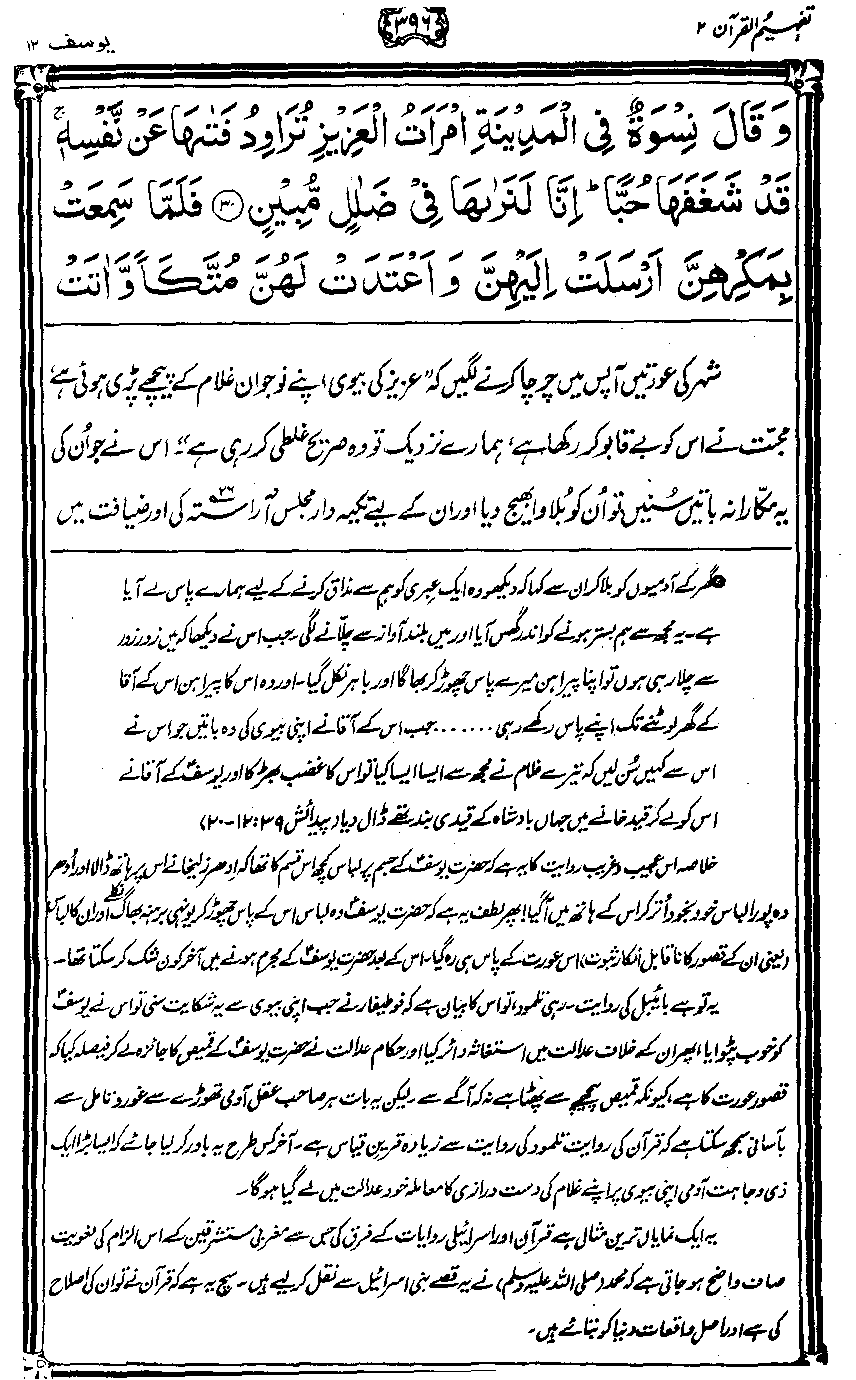 تفہیم القرآن ۲
۳۹۶
یوسف ۱۲
وَ قَالَ نِسْوَةٌ فِی الْمَدِیْنَةِ امْرَاَتُ الْعَزِیْزِ تُرَاوِدُ فَتٰىهَا عَنْ نَّفْسِهٖ ۚ
قَدْ شَغَفَهَا حُبًّا ؕ اِنَّا لَنَرٰىهَا فِیْ ضَلٰلٍ مُّبِیْنٍ ﴿۳۰﴾ فَلَمَّا سَمِعَتْ
بِمَكْرِهِنَّ اَرْسَلَتْ اِلَیْهِنَّ وَ اَعْتَدَتْ لَهُنَّ مُتَّكَاً وَّ اٰتَتْ
شہر کی عورتیں آپس میں چرچا کرنے لگیں کہ ”عزیز کی بیوی اپنے نوجوان غلام کے پیچھے پڑی ہوئی ہے،
محبت نے اس کو بے قابو کر رکھا ہے، ہمارے نزدیک تو وہ صریح غلطی کر رہی ہے“۔ اس نے جو اُن کی
یہ مکّارانہ باتیں سُنیں تو اُن کو بُلاوا بھیج دیا اور ان کے لیے تکیہ دار مجلس آراستہ کی۲۶ اور ضیافت میں
گھر کے آدمیوں کو بلا کر ان سے کہا کہ دیکھو وہ ایک عبری کو ہم سے مذاق کرنے کے لیے ہمارے پاس لے آیا
ہے۔ یہ مجھ سے ہم بستر ہونے کو اندر گھس آیا اور میں بلند آواز سے چلّانے لگی۔ جب اس نے دیکھا کہ میں زور زور
سے چلا رہی ہوں تو اپنا پیراہن میرے پاس چھوڑ کر بھاگا اور باہر نکل گیا۔ اور وہ اس کا پیراہن اس کے آقا
کے گھر لوٹنے تک اپنے پاس رکھے رہی ....... جب اس کے آقا نے اپنی بیوی کی وہ باتیں جو اس نے
اس سے کہیں سُن لیں کہ تیرے غلام نے مجھ سے ایسا ایسا کیا تو اس کا غضب بھڑکا اور یوسفؑ کے آقا نے
اس کو لے کر قید خانے میں جہاں بادشاہ کے قیدی بند تھے ڈال دیا“ (پیدائش ۳۹: ۱۲-۲۰)
خلاصہ اس عجیب و غریب روایت کا یہ ہے کہ حضرت یوسفؑ کے جسم پر لباس کچھ اس قسم کا تھا کہ اِدھر زلیخا نے اس پر ہاتھ ڈالا اور اُدھر
وہ پورا لباس خود بخود اُتر کر اس کے ہاتھ میں آگیا! پھر لطف یہ ہے کہ حضرت یوسفؑ وہ لباس اس کے پاس چھوڑ کر یونہی برہنہ بھاگ نکلے اور ان کا لباس
(یعنی ان کے قصور کا ناقابل انکار ثبوت) اس عورت کے پاس ہی رہ گیا۔ اس کے بعد حضرت یوسفؑ کے مجرم ہونے میں آخر کون شک کر سکتا تھا۔
یہ تو ہے بائیبل کی روایت۔ رہی تلمود، تو اس کا بیان ہے کہ فوطیفار نے جب اپنی بیوی سے یہ شکایت سنی تو اس نے یوسفؑ
کو خوب پٹوایا، پھر ان کے خلاف عدالت میں استغاثہ دائر کیا اور حکام عدالت نے حضرت یوسفؑ کے قمیص کا جائزہ لے کر فیصلہ کیا کہ
قصور عورت کا ہے، کیونکہ قمیص پیچھے سے پھٹا ہے نہ کہ آگے سے۔ لیکن یہ بات ہر صاحب عقل آدمی تھوڑے سے غور و تامل سے
بآسانی سمجھ سکتا ہے کہ قرآن کی روایت تلمود کی روایت سے زیادہ قرین قیاس ہے۔ آخر کس طرح یہ باور کر لیا جائے کہ ایسا بڑا ایک
ذی وجاہت آدمی اپنی بیوی پر اپنے غلام کی دست درازی کا معاملہ خود عدالت میں لے گیا ہوگا۔
یہ ایک نمایاں ترین مثال ہے قرآن اور اسرائیلی روایات کے فرق کی جس سے مغربی مستشرقین کے اس الزام کی لغویت
صاف واضح ہو جاتی ہے کہ محمد (صلی اللہ علیہ وسلم) نے یہ قصے بنی اسرائیل سے نقل کر لیے ہیں۔ سچ یہ ہے کہ قرآن نے تو ان کی اصلاح
کی ہے اور اصل واقعات دنیا کو بتائے ہیں۔